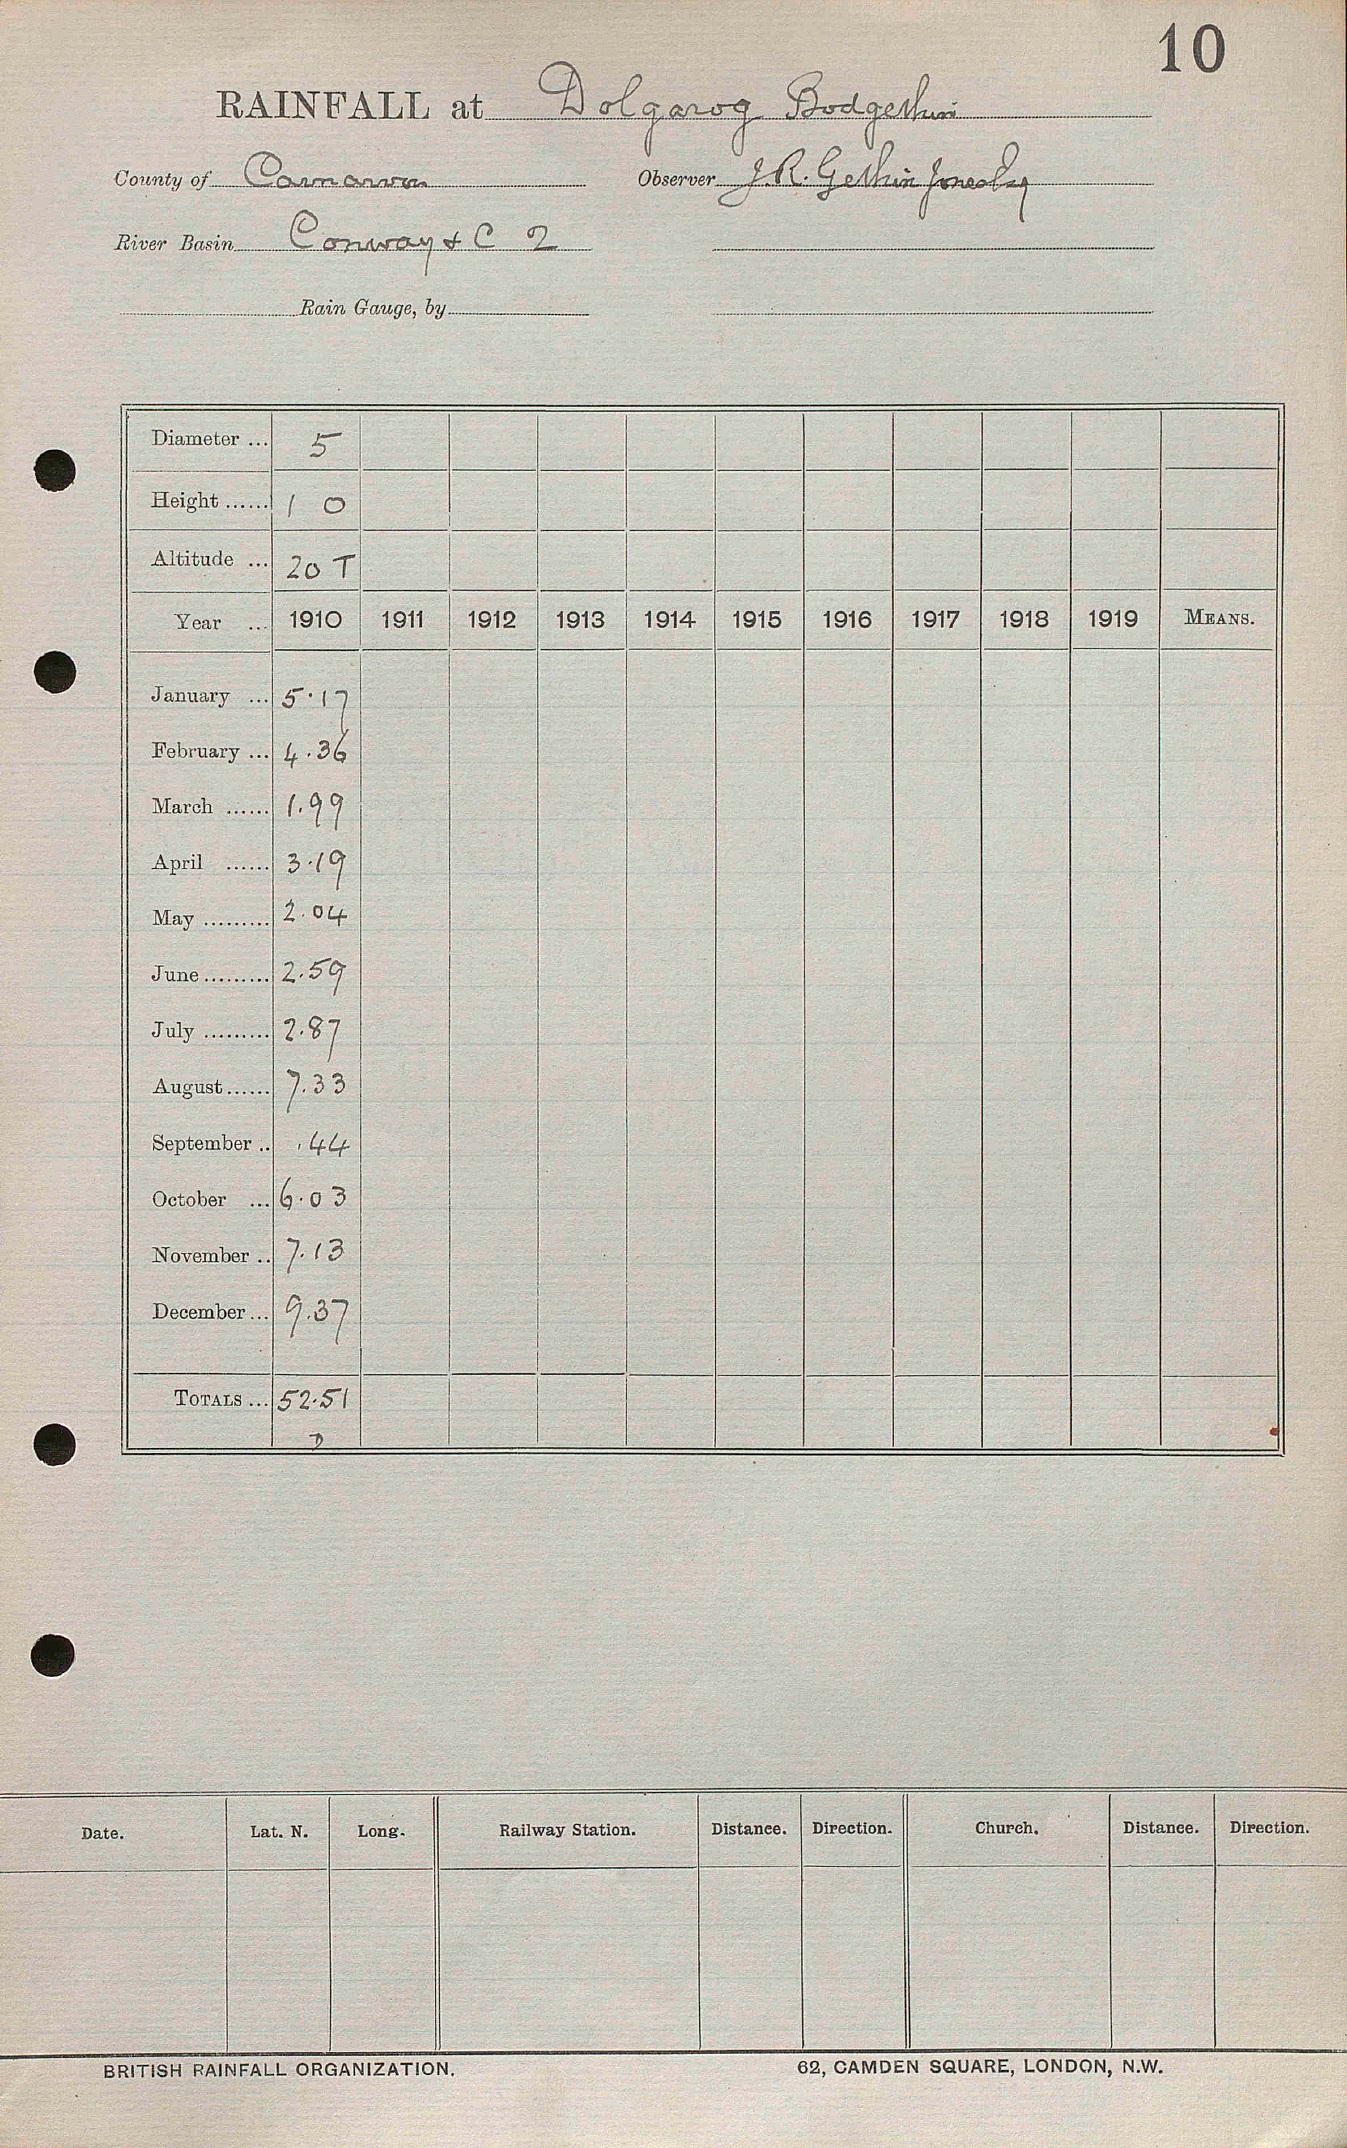 10
RAINFALL at Dolgarog Bodgethin
County of Carnarvon Observer J.R. Gethin Jones Esq
River Basin Conway & C 2
Rain Gauge, by
Diameter ... 5
Height ...... 1 0
Altitude ... 20 T
Year ... 1910 1911 1912 1913 1914 1915 1916 1917 1918 1919 MEANS.
January ... 5.17
February ... 4.36
March ...... 1.99
April ...... 3.19
May ......... 2.04
June ......... 2.59
July ......... 2.87
August ...... 7.33
September .. .44
October ... 6.03
November .. 7.13
December ... 9.37
TOTALS ... 52.51
Date. Lat. N. Long. Railway Station. Distance. Direction. Church. Distance. Direction.
BRITISH RAINFALL ORGANIZATION. 62, CAMDEN SQUARE, LONDON, N.W.